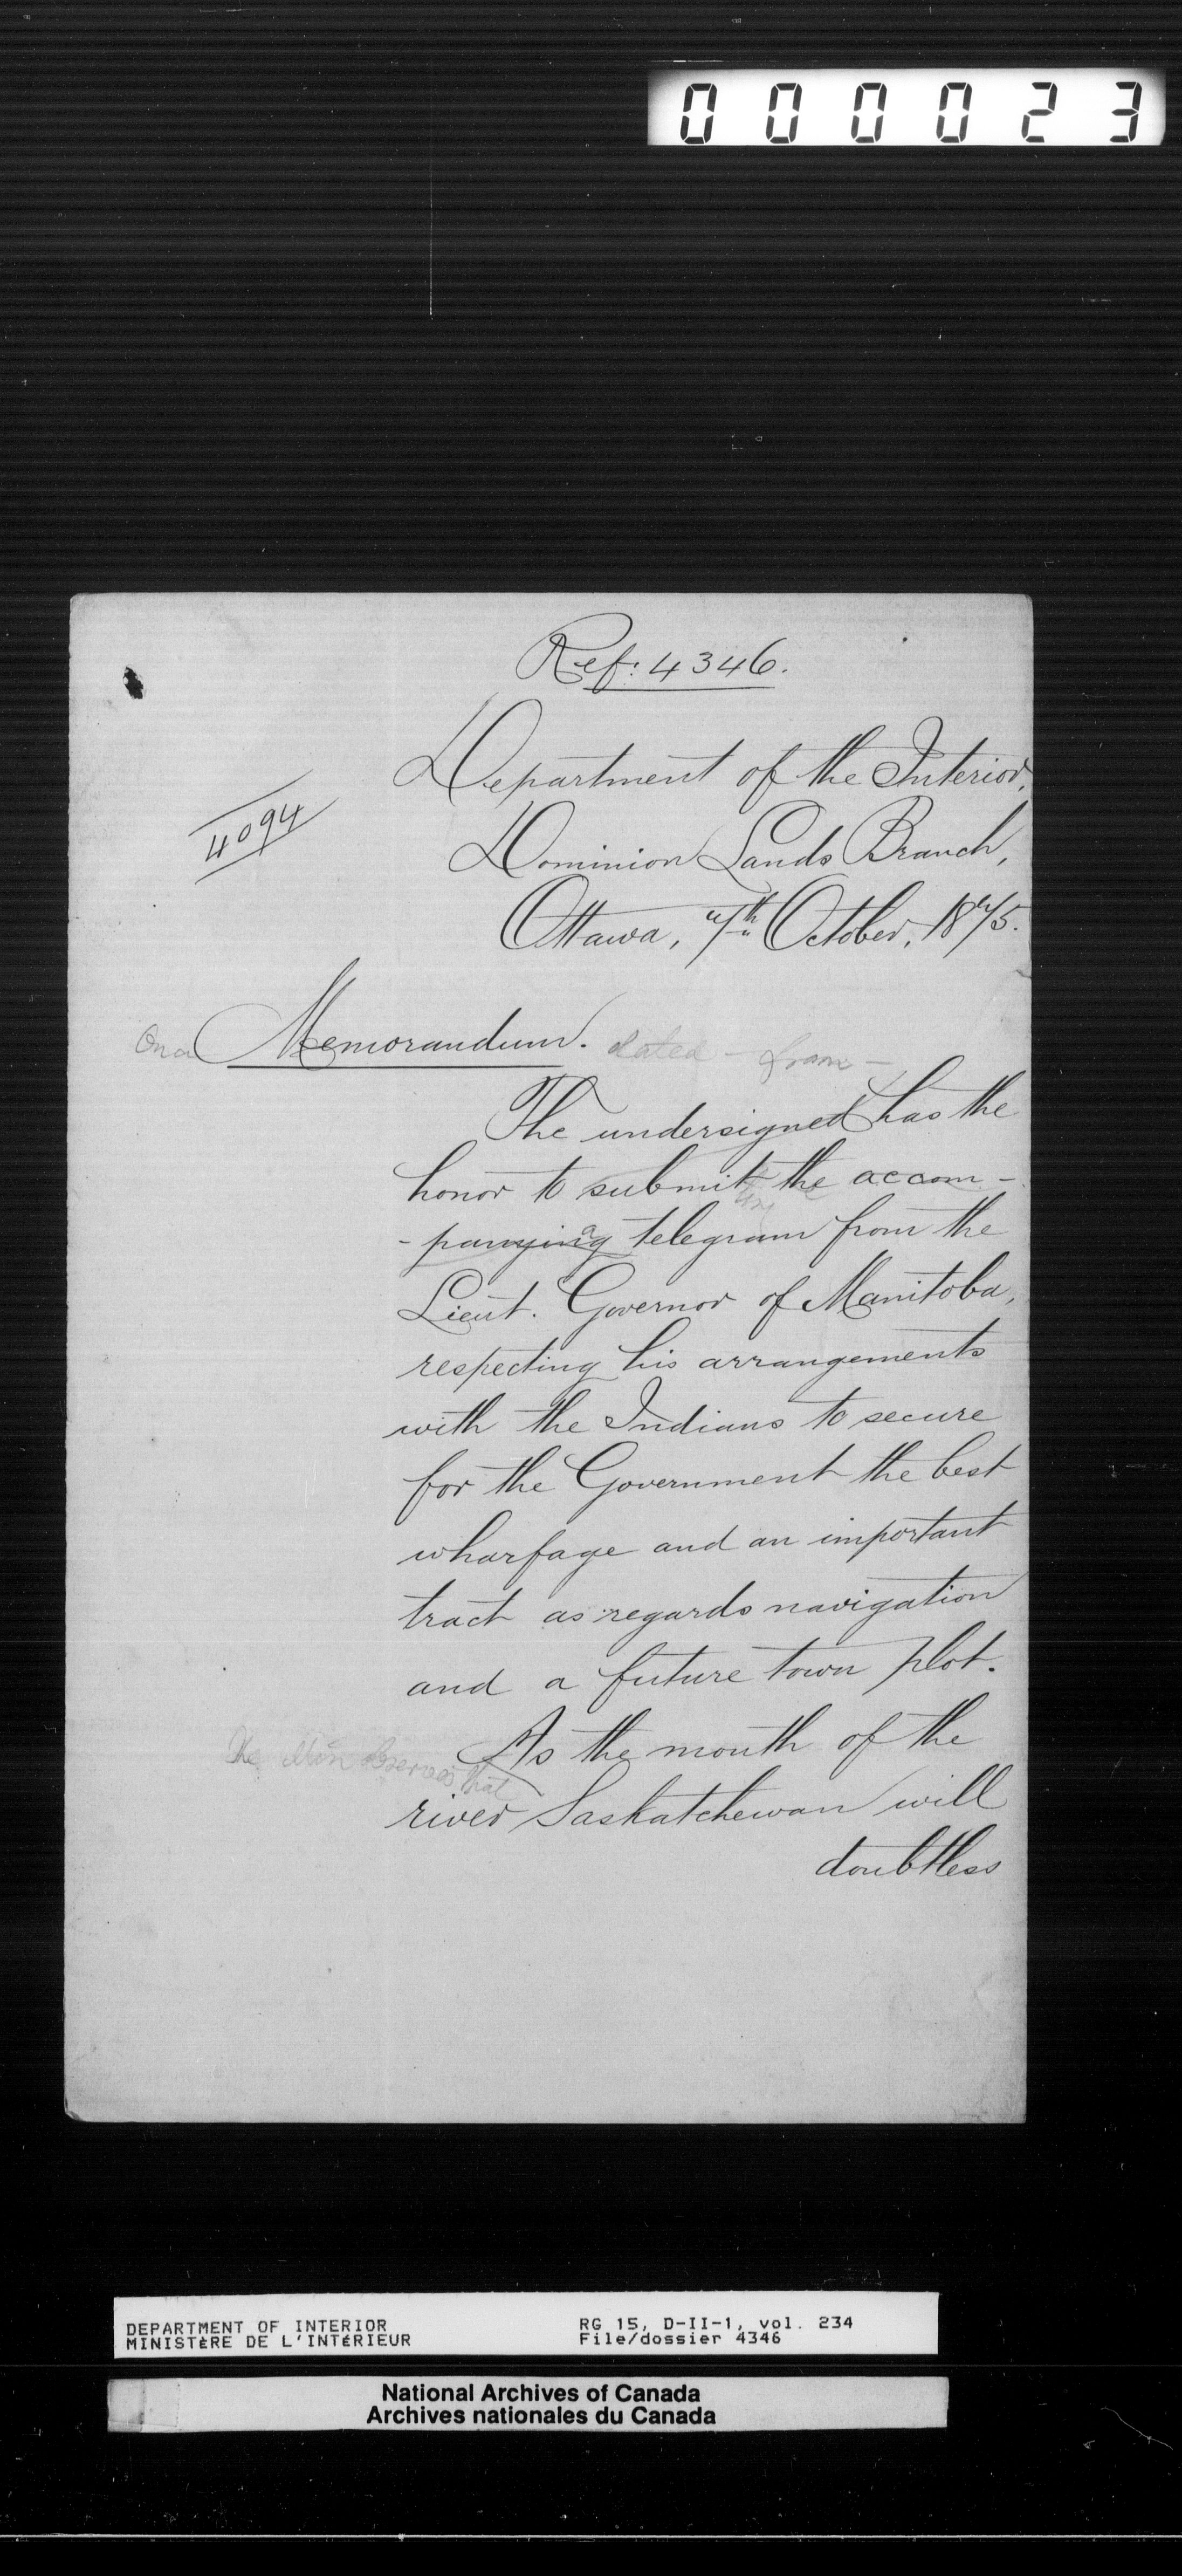 000023
Ref: 4346.
Department of the Interior,
Dominion Lands Branch,
4094
Ottawa, 7th October, 1875.
On a Memorandum. dated - from -
The undersigned has the
honor to submit the accom-
-panying a telegram from the
Lieut. Governor of Manitoba,
respecting his arrangements
with the Indians to secure
for the Government the best
wharfage and an important
tract as regards navigation
and a future town plot.
As the mouth of the
The Min observes that
river Saskatchewan will
doubtless
DEPARTMENT OF INTERIOR
MINISTÈRE DE L'INTÉRIEUR
RG 15, D-II-1, vol. 234
File/dossier 4346
National Archives of Canada
Archives nationales du Canada